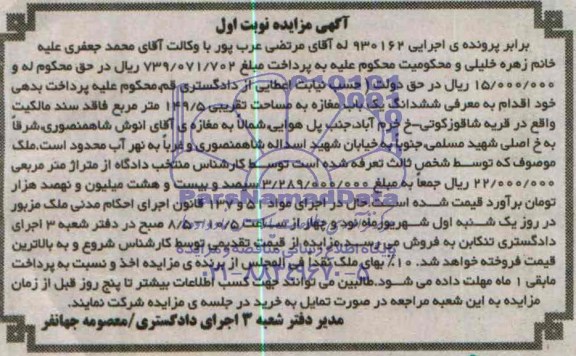 آگهی مزایده نوبت اول
برابر پرونده ی اجرایی ۹۳۰۱۶۲ له آقای مرتضی عرب پور با وکالت آقای محمد جعفری علیه
خانم زهره خلیلی و محکومیت محکوم علیه به پرداخت مبلغ ۷۳۹/۰۷۱/۷۰۲ ریال در حق محکوم له و
۱۵/۰۰۰/۰۰۰ ریال در حق دولت( حسب نیابت اعطایی از دادگستری قم،محکوم علیه پرداخت بدهی
خود اقدام به معرفی ششدانگ یکباب مغازه به مساحت تقریبی ۱۴۹/۵ متر مربع فاقد سند مالکیت
واقع در قریه شاقوزکوتی-خ خرم آباد،جنب پل هوایی،شمالاً به مغازه ی آقای انوش شاهمنصوری،شرقاً
به خ اصلی شهید مسلمی،جنوباً به خیابان شهید اسداله شاهمنصوری و غرباً به نهر آب محدود است.ملک
موصوف که توسط شخص ثالث تعرفه شده است توسط کارشناس منتخب دادگاه از متراژ متر مربعی
۲۲/۰۰۰/۰۰۰ ریال جمعاً به مبلغ ۳/۲۸۹/۰۰۰/۰۰۰ سیصد و بیست و هشت میلیون و نهصد هزار
تومان برآورد قیمت شده است.حال در اجرای مواد ۱۳۵و۱۳ قانون اجرای احکام مدنی ملک مزبور
در روز یک شنبه اول شهریورماه نود و چهار از ساعت ۸/۵/۱۰/۵ صبح در دفتر شعبه ۳ اجرای
دادگستری تنکابن به فروش می‌رسد.مزایده از قیمت تقدیمی توسط کارشناس شروع و به بالاترین
قیمت فروخته خواهد شد. ۱۰٪ بهای ملک نقداً فی المجلس از برنده ی مزایده اخذ و نسبت به پرداخت
مابقی ۱ ماه مهلت داده می شود.طالبین می توانند جهت کسب اطلاعات بیشتر تا پنج روز قبل از زمان
مزایده به این شعبه مراجعه در صورت تمایل به خرید در جلسه ی مزایده شرکت نمایند.
مدیر دفتر شعبه ۳ اجرای دادگستری/معصومه جهانفر
ParsNamadData
پایگاه اطلاع رسانی مناقصه و مزایده
۰۲۱-۸۸۳۴۹۶۷۰-۵